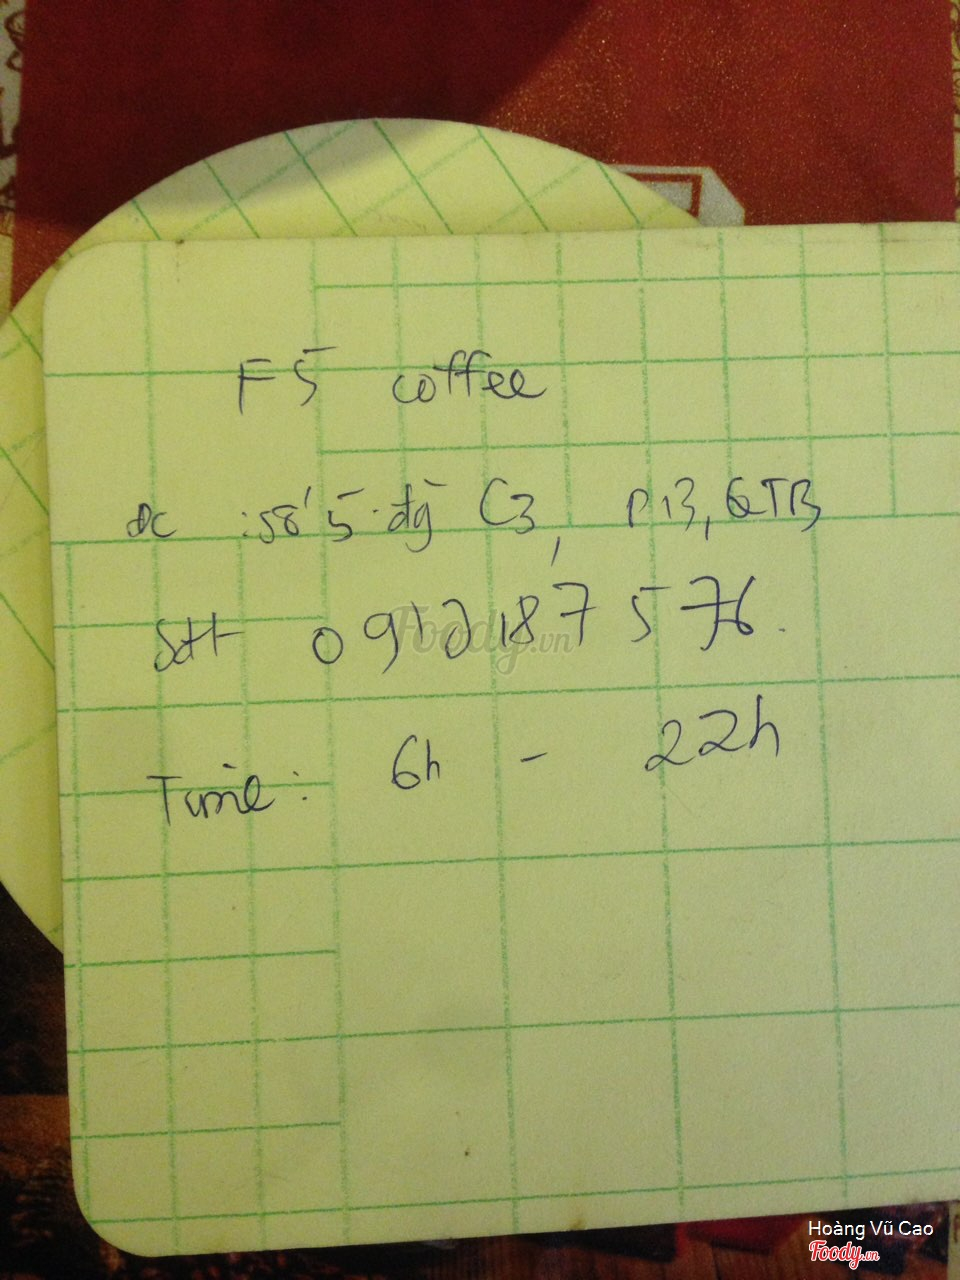 F5 coffee
ĐC : số 5 đg C3, P13, QTB
Sđt 0912187576.
Time: 6h - 22h
Foody.vn
Hoàng Vũ Cao
Foody.vn